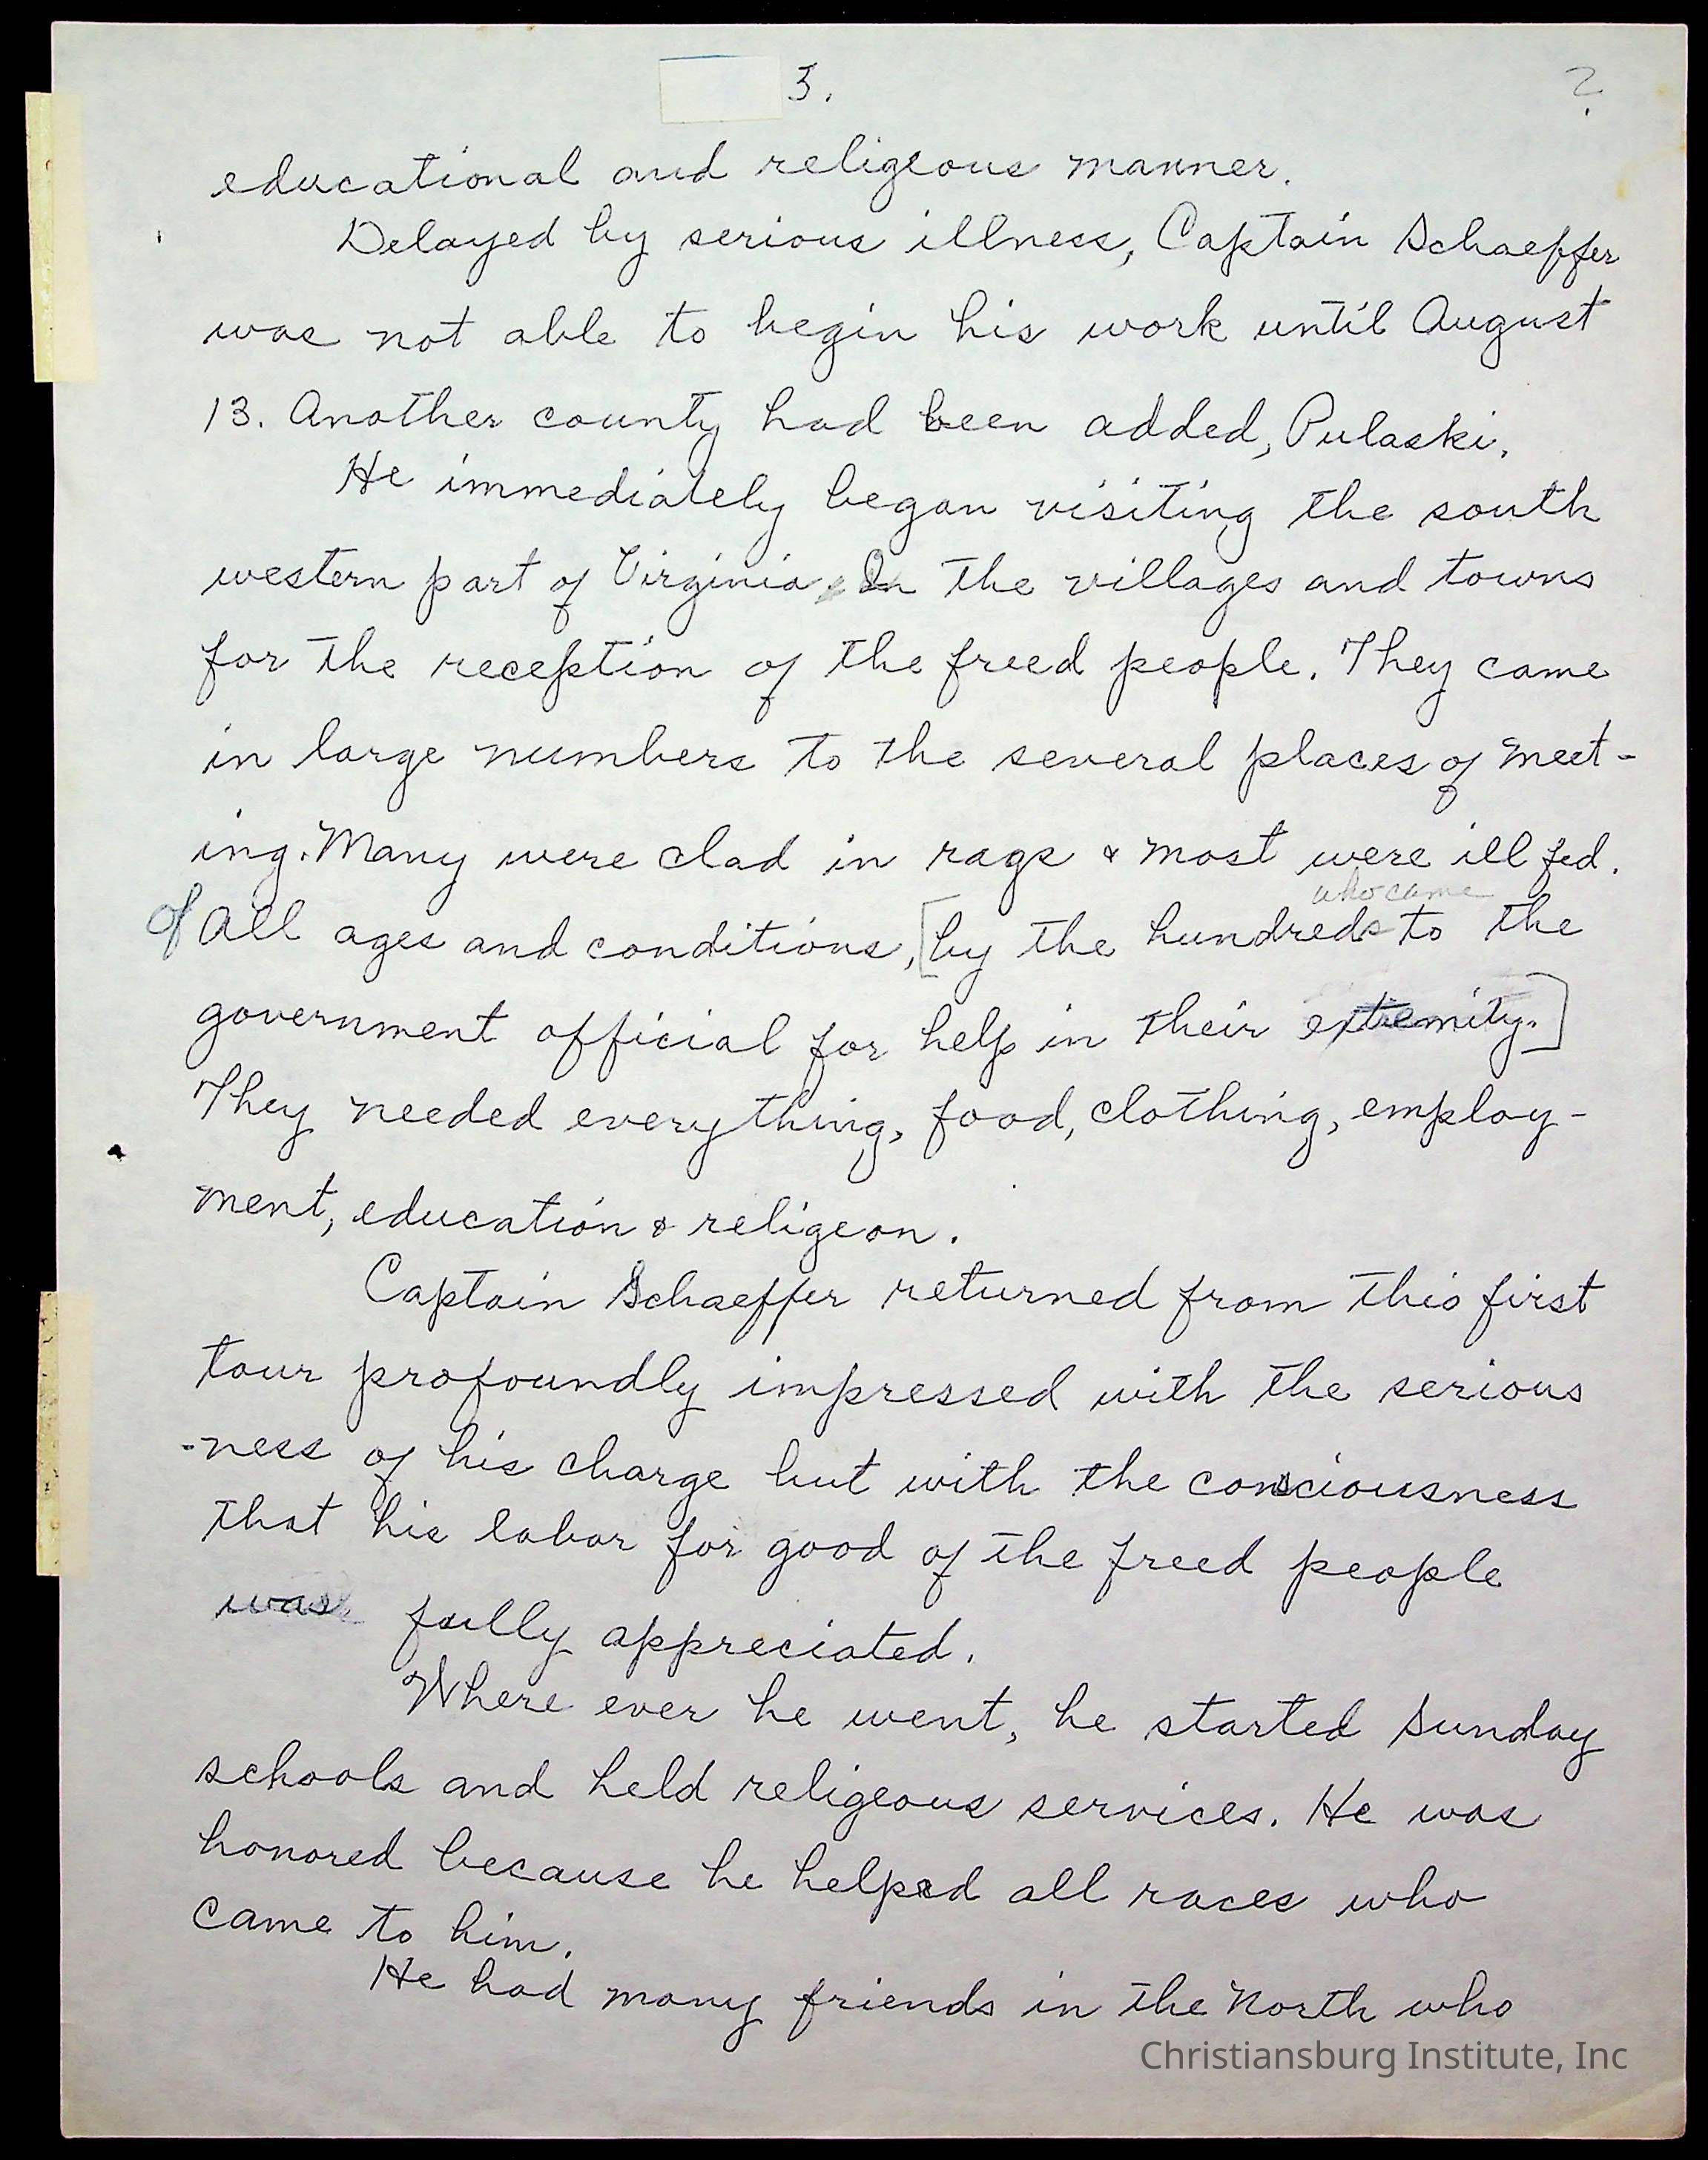 3.
?
educational and religeous manner.
Delayed by serious illness, Captain Schaeffer
was not able to begin his work until August
13. Another county had been added, Pulaski.
He immediately began visiting the south
western part of Virginia. In the villages and towns
for the reception of the freed people. They came
in large numbers to the several places of meet-
ing. Many were clad in rags & most were ill fed.
who came
of All ages and conditions, [by the hundreds to the
government official for help in their extremity.]
They needed everything, food, clothing, employ-
ment, education & religeon.
Captain Schaeffer returned from this first
tour profoundly impressed with the serious
-ness of his charge but with the consciousness
that his labor for good of the freed people
was fully appreciated.
Where ever he went, he started Sunday
schools and held religeous services. He was
honored because he helped all races who
came to him.
He had many friends in the North who
Christiansburg Institute, Inc